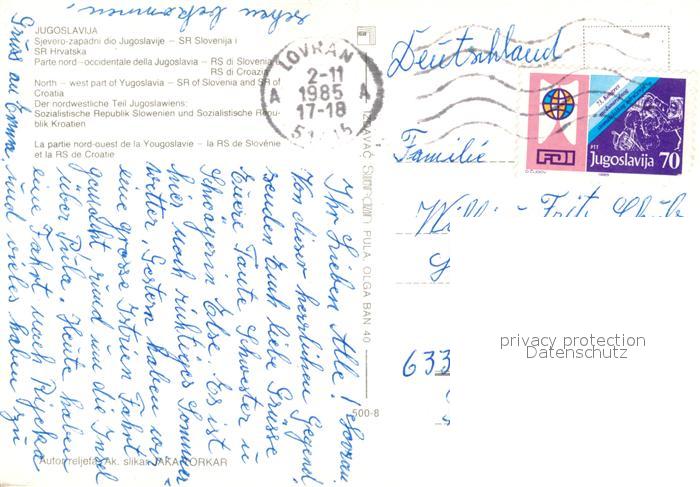 JUGOSLAVIJA
Sjevero-zapadni dio Jugoslavije – SR Slovenija i
SR Hrvatska
Parte nord-occidentale della Jugoslavia – RS di Slovenia e
RS di Croazia
North – west part of Yugoslavia – SR of Slovenia and SR of
Croatia
Der nordwestliche Teil Jugoslawiens:
Sozialistische Republik Slowenien und Sozialistische Repu-
blik Kroatien
La partie nord-ouest de la Yougoslavie – la RS de Slovénie
et la RS de Croatie
Ihr Lieben Alle! Lovran.
Von dieser herrlichen Gegend
senden Euch liebe Grüsse
Euere Tante Schwester u
Schwägerin Else. Es ist
hier noch richtiges Sommer
wetter, Gestern haben wir
eine grosse Istrien Fahrt
gemacht rund um die Insel
über Pula. Heute haben
eine Fahrt nach Rijeka
und vieles haben zu
sehen bekommen.
Grüs an Emma,
Autor reljefa: Ak. slikar JAKA TORKAR
PULA, OLGA BAN 40
500-8
LOVRAN
2-11
1985
17-18
A A
Deutschland
Familie
633
PTT
Jugoslavija 70
FDI
1985
privacy protection
Datenschutz